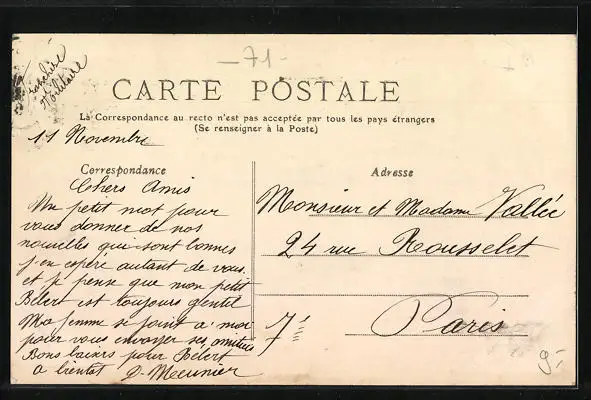 -71-
Franchise
Militaire
CARTE POSTALE
La Correspondance au recto n'est pas acceptée par tous les pays étrangers
(Se renseigner à la Poste)
11 Novembre
Correspondance
Chers Amis
Un petit mot pour
vous donner de nos
nouvelles qui sont bonnes
j'en espère autant de vous.
et je pense que mon petit
Bébert est toujours gentil
Ma femme se joint a moi
pour vous envoyer ses amitiés
Bons baisers pour Bébert
a bientot J. Meunier
Adresse
Monsieur et Madame Vallée
24 rue Rousselet
Paris
7è
9-